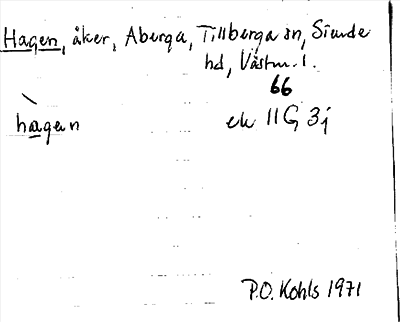 Hagen, åker, Aberga, Tillberga sn, Siende
hd, Västm. l.
66
hàgen
ek 11G 3j
P.O. Kohls 1971